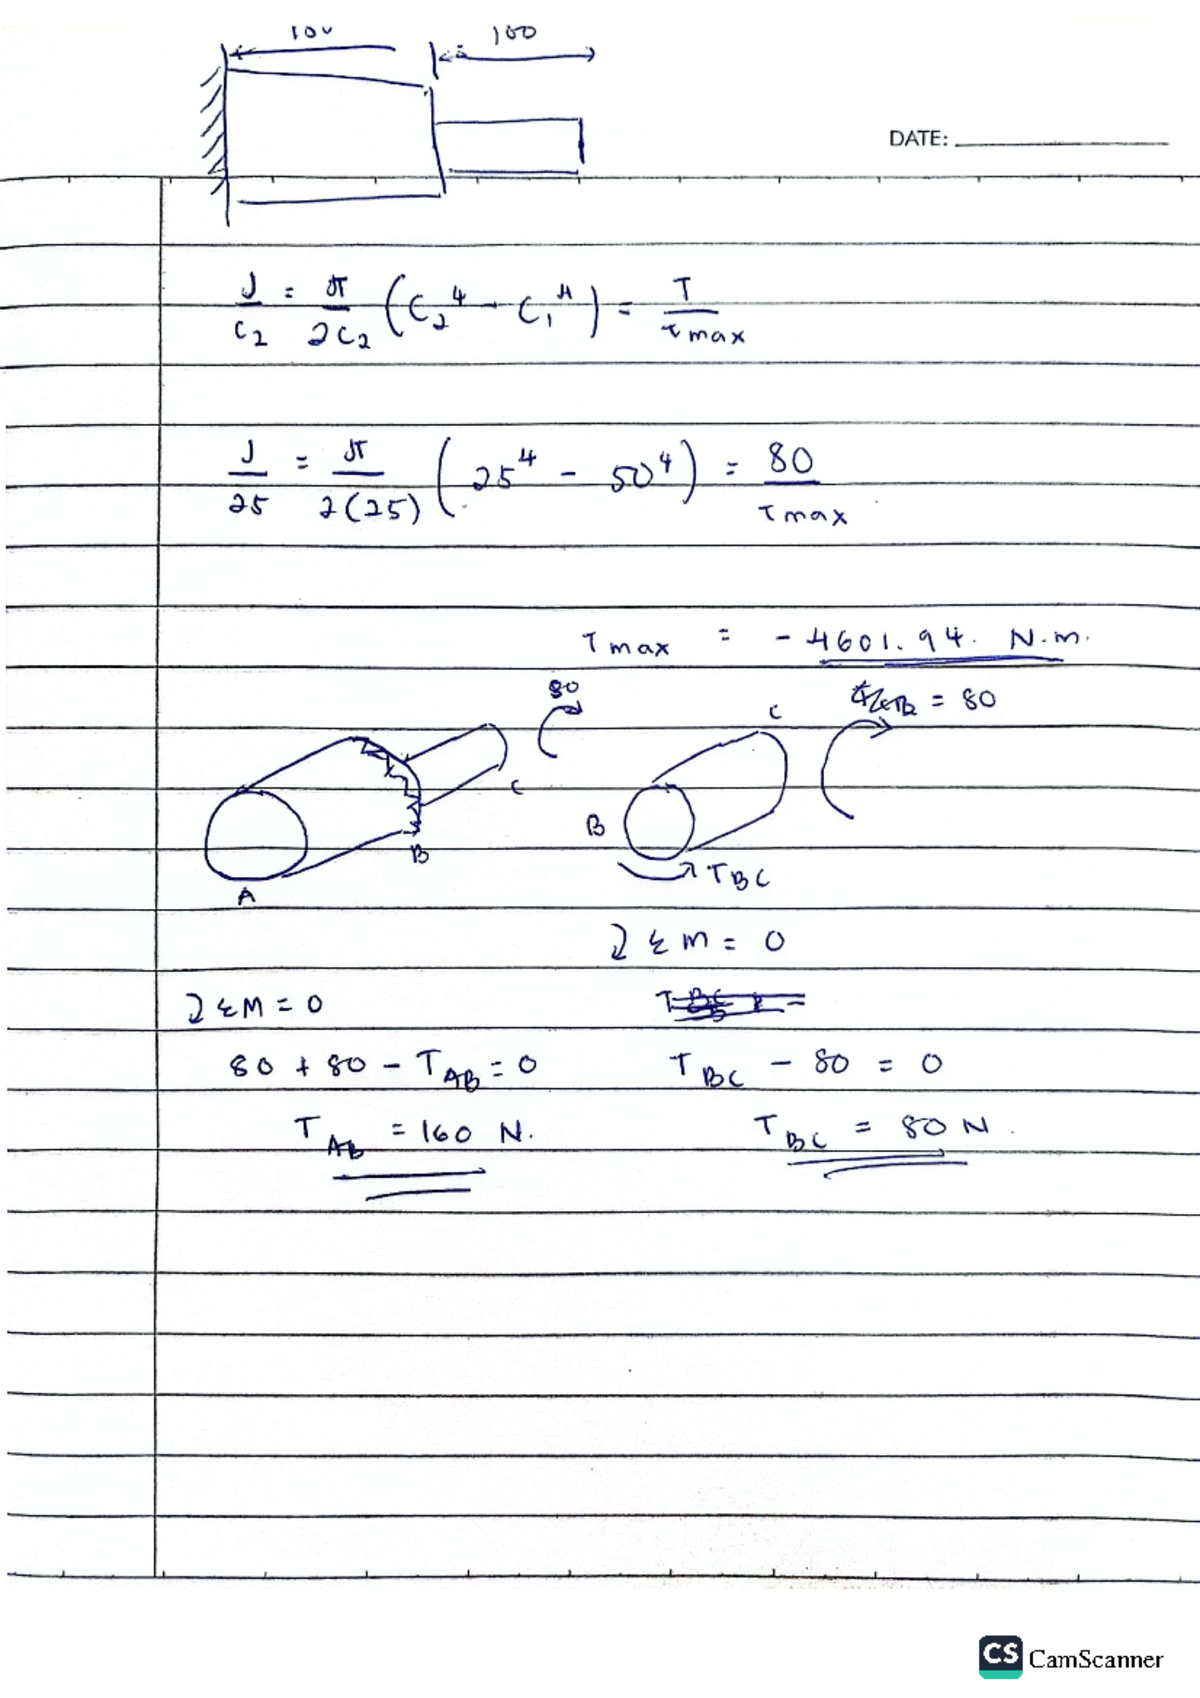 100 100
DATE:
J/C₂ = π/2C₂ (C₂⁴ - C₁⁴) = T/τmax
J/25 = π/2(25) (25⁴ - 50⁴) = 80/τmax
τmax = -4601.94 N.m.
80
= 80
C
C
B
B
TBC
A
↻ ΣM = 0
↻ ΣM = 0
80 + 80 - TAB = 0
TBC - 80 = 0
TAB = 160 N.
TBC = 80 N.
CS CamScanner